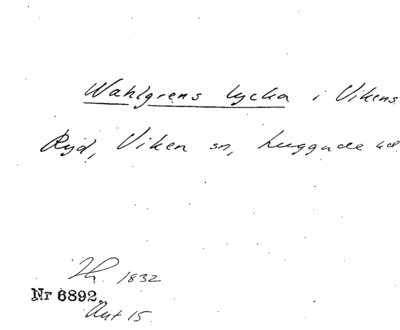 Wahlgrens lycka i Vikens
Ryd, Viken sn, Luggude hd.
Th. 1832
Nr 6892.
Akt 15.